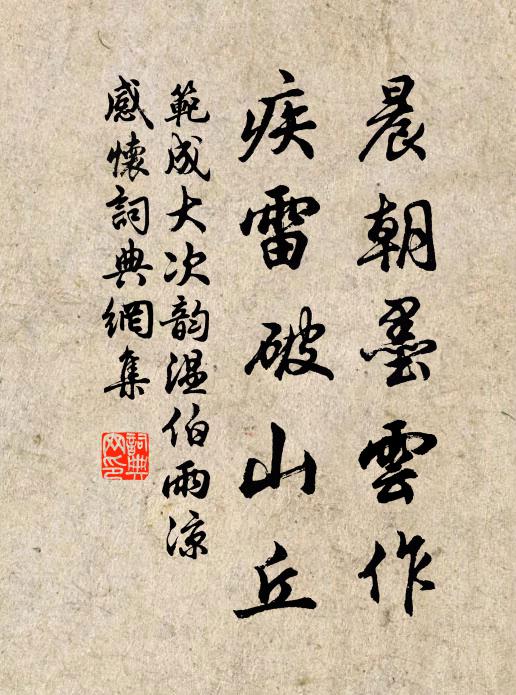 晨朝墨雲作
疾雷破山丘
範成大次韵溫伯雨涼
感懷詞典網集
詞典网印